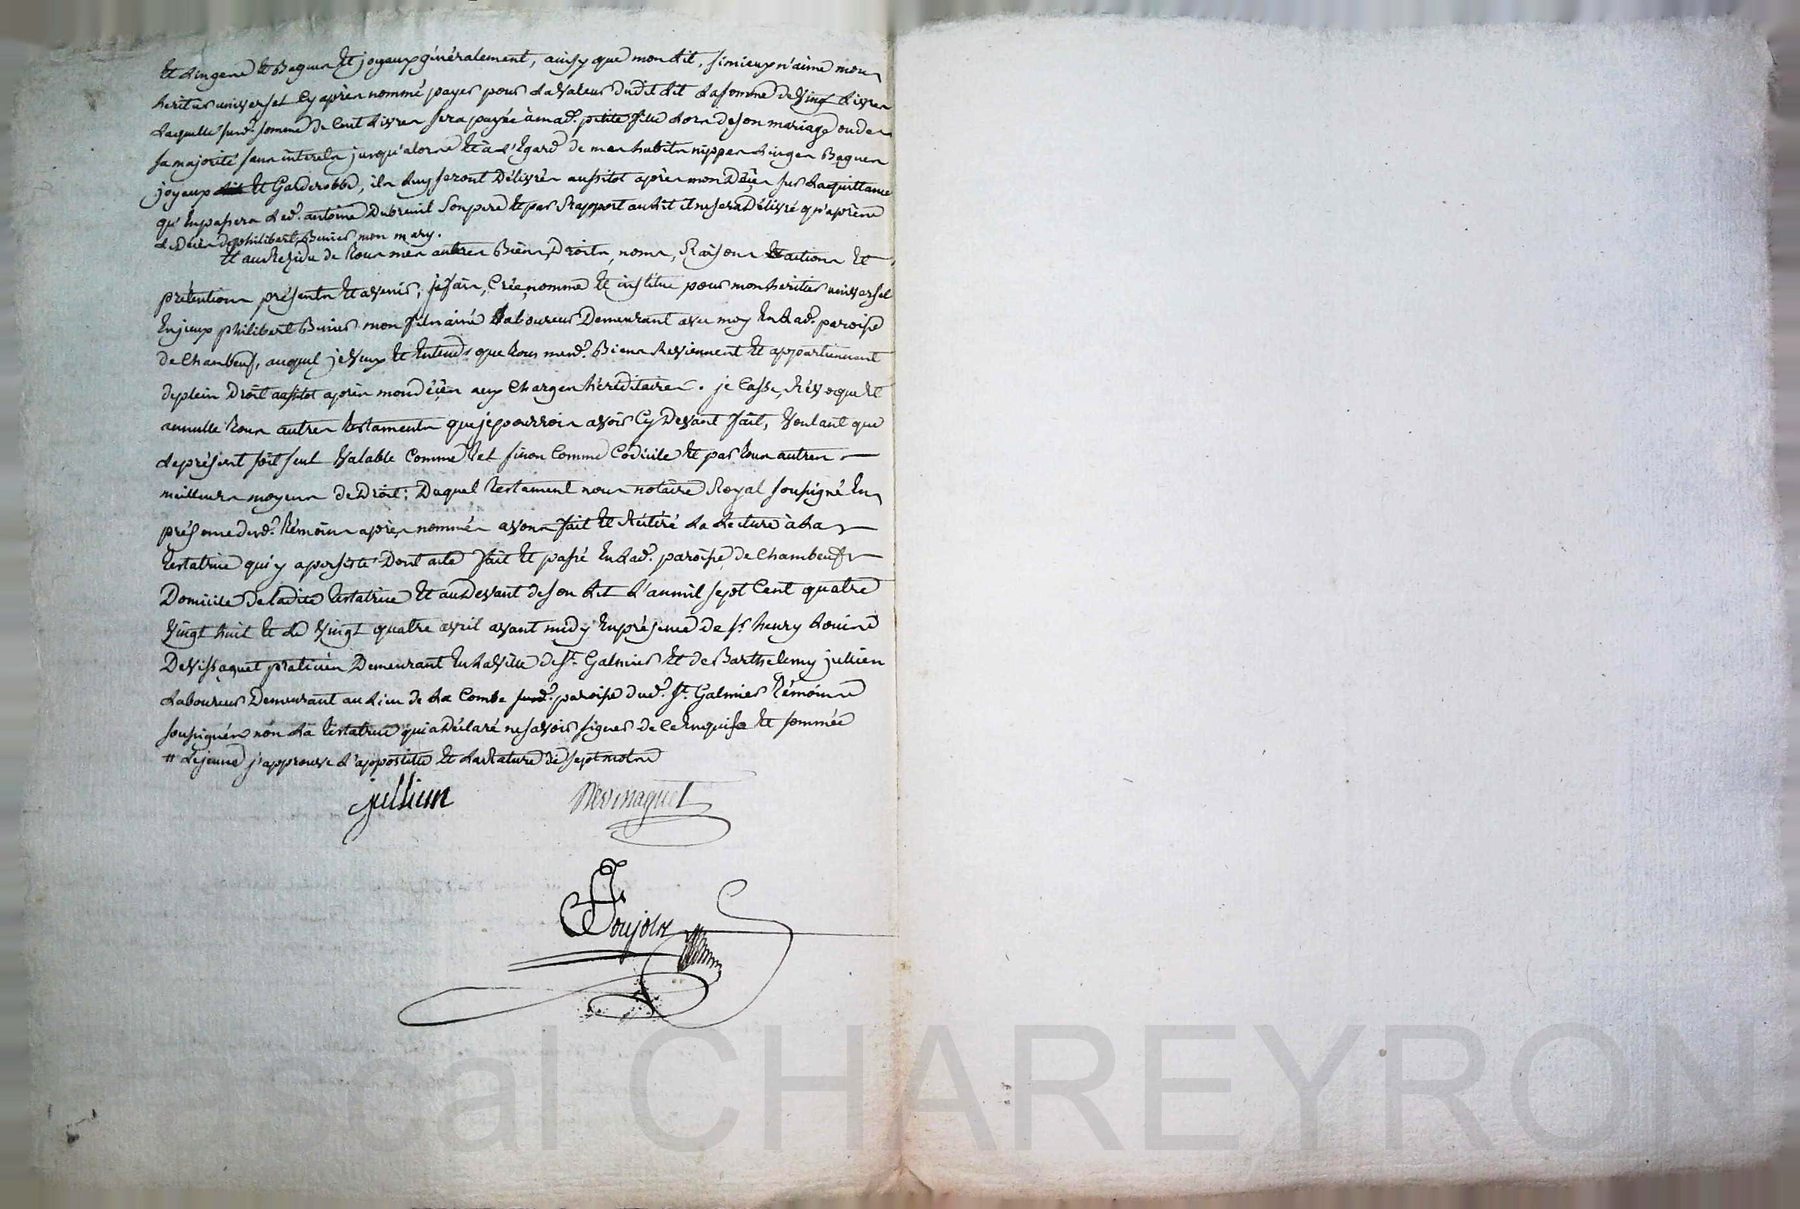 et lingerie et Bagues et joyaux généralement, ainsy que mon lit, si mieux n'aime mon
heritier universel cy après nommé payer pour la valeur dudit lit la somme de vingt livres
laquelle susd.e somme de cent livres sera payée à mad.e petite fille lors de son mariage ou de
sa majorité sans interets jusqu'alors et à l'Egard de mes habits nippes linges Bagues
joyaux et Garderobbe, ils luy seront Délivrés aussitot après mon Décès sur la quittance
qu'en passera led.t antoine Dubreuil son pere et par Rapport au lit il ne sera Délivré qu'après
le Décès de philibert mon mary.
Et au Residu de tous mes autres Biens, Droits, noms, Raisons et actions et
prétentions présents et avenir, je fais, Crée, nomme et institue pour mon heritier universel
philibert mon fils ainé Laboureur Demeurant avec moy En lad.e paroisse
de Chambeuf, auquel je veux et Entends que tous mesd. Biens Reviennent et appartiennent
de plein Droit aussitot après mon décès aux Charges héréditaires. je Casse, Révoque et
annulle tous autres testaments que je pourrois avoir Cy Devant fait, voulant que
le présent soit seul valable Comme tel sinon Comme Codicile et par tous autres
meilleurs moyens de Droit; Duquel testament nous notaire Royal soussigné En
présence desd. témoins après nommés avons fait et Réitéré la Lecture à la
testatrice qui y a persisté Dont acte fait et passé En lad.e paroisse de Chambeuf
Domicile de ladite testatrice et au Devant de son lit l'an mil sept Cent quatre
vingt huit et le vingt quatre avril avant midy En présence de s.r henry
praticien Demeurant En la ville de S.t Galmier et de Barthelemy jullien
Laboureur Demeurant au Lieu de la Combe susd.e paroisse dud.t S.t Galmier témoins
soussignés non la testatrice qui a Déclaré ne savoir signer de ce Enquise et sommée
j'approuve l'apostille et la rature de sept mots
jullien
Poujols